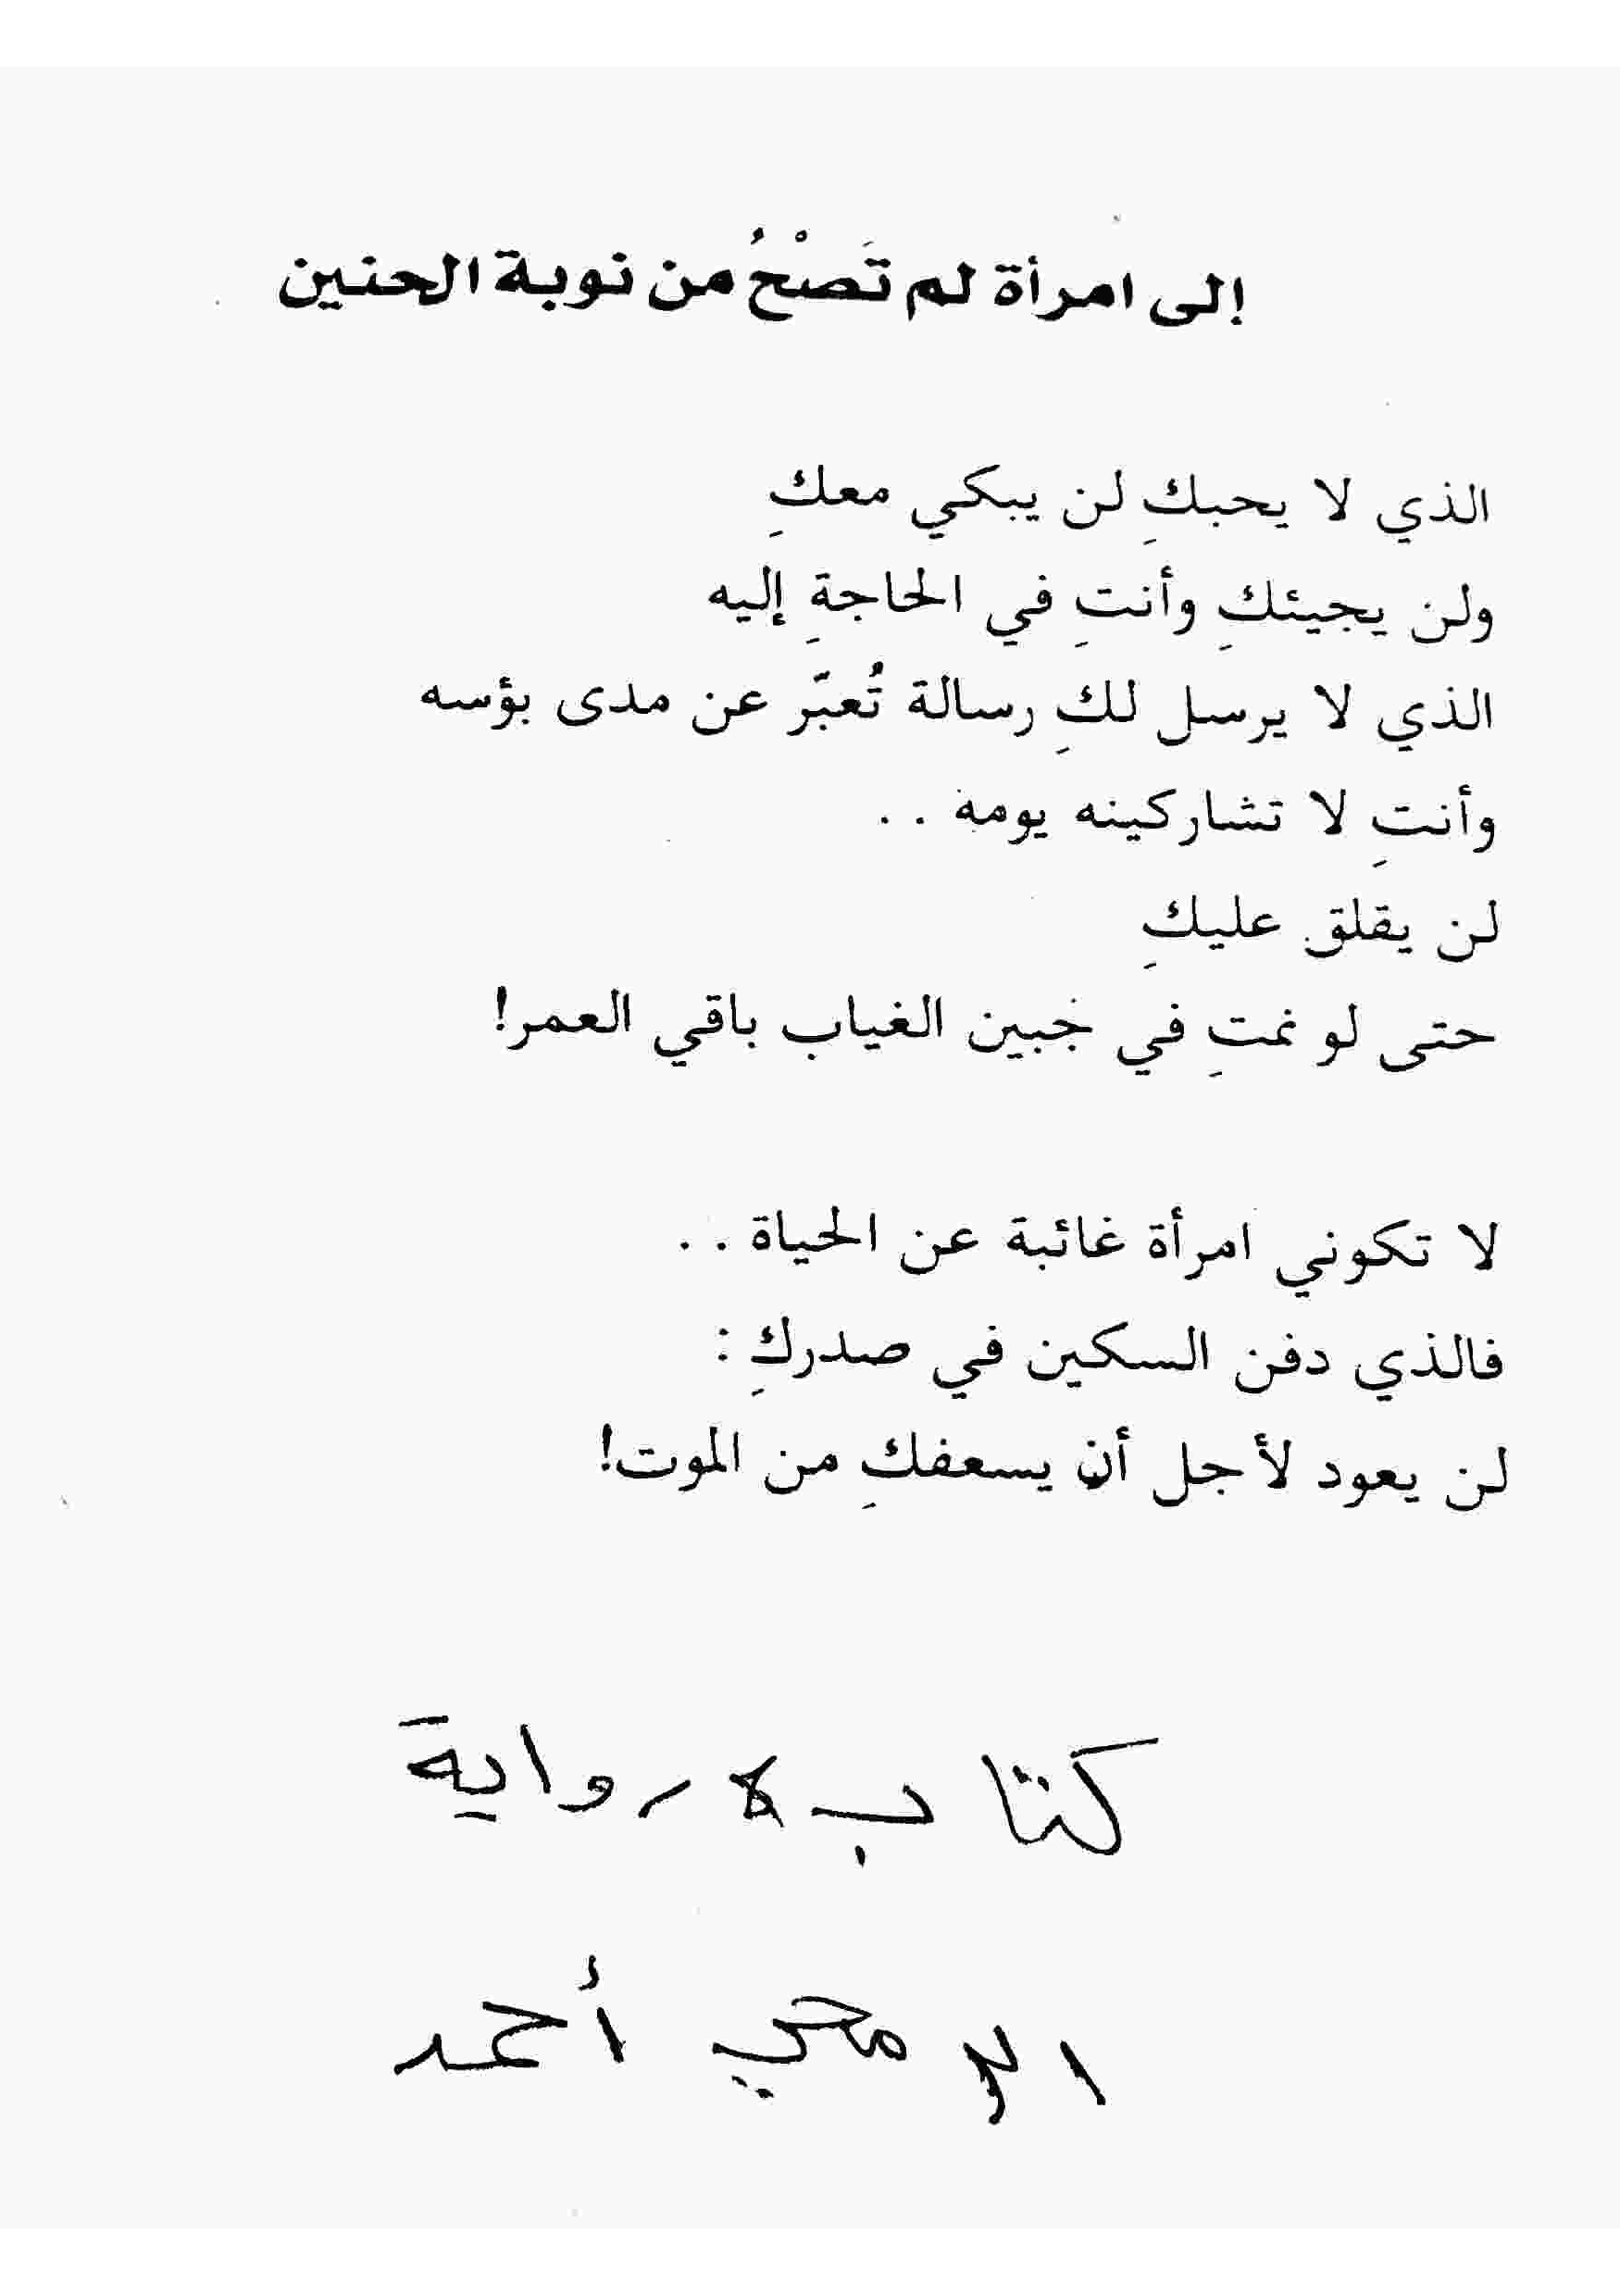 إلى امرأة لم تَصْحُ من نوبة الحنين
الذي لا يحبكِ لن يبكي معكِ
ولن يجيئكِ وأنتِ في الحاجةِ إليه
الذي لا يرسل لكِ رسالة تُعبّر عن مدى بؤسه
وأنتِ لا تشاركينه يومه . .
لن يقلق عليكِ
حتى لو نمتِ في جبين الغياب باقي العمر!
لا تكوني امرأة غائبة عن الحياة . .
فالذي دفن السكين في صدركِ :
لن يعود لأجل أن يسعفكِ من الموت!
كتاب لا رواية
أحمد